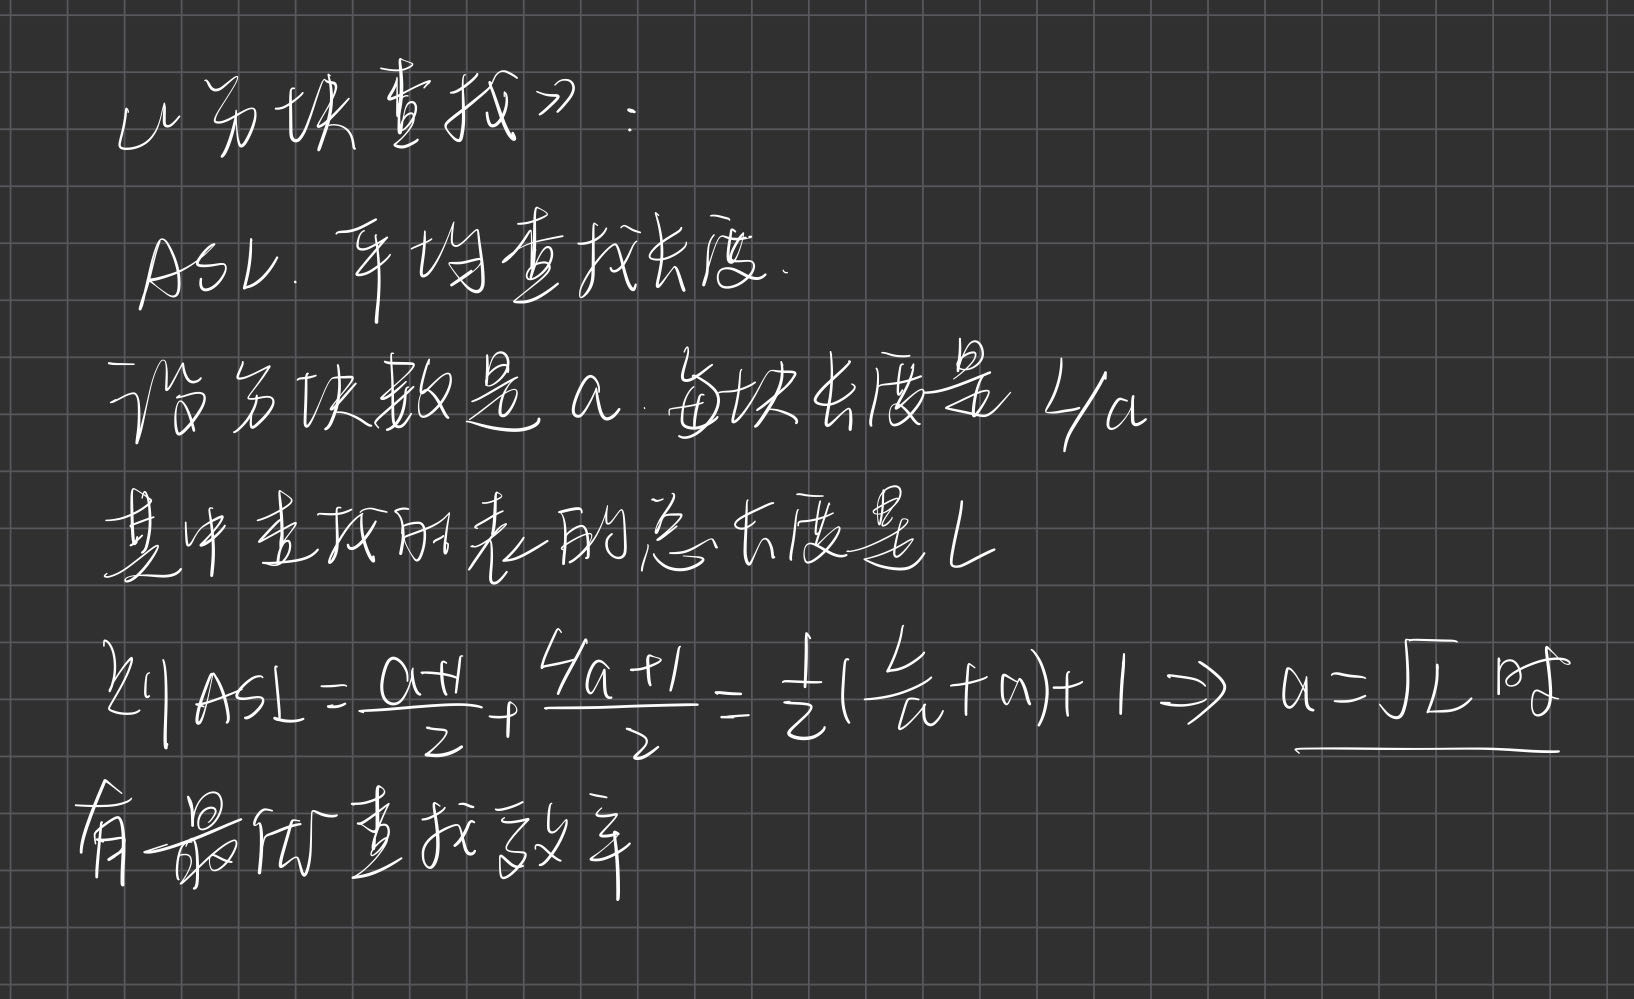 《分块查找》:
ASL. 平均查找长度.
设分块数是 a. 每块长度是 L/a
其中查找的表的总长度是 L
则 ASL = \frac{a+1}{2} + \frac{L/a+1}{2} = \frac{1}{2}(\frac{L}{a}+a)+1 ⇒ a=√L 时
有最优查找效率